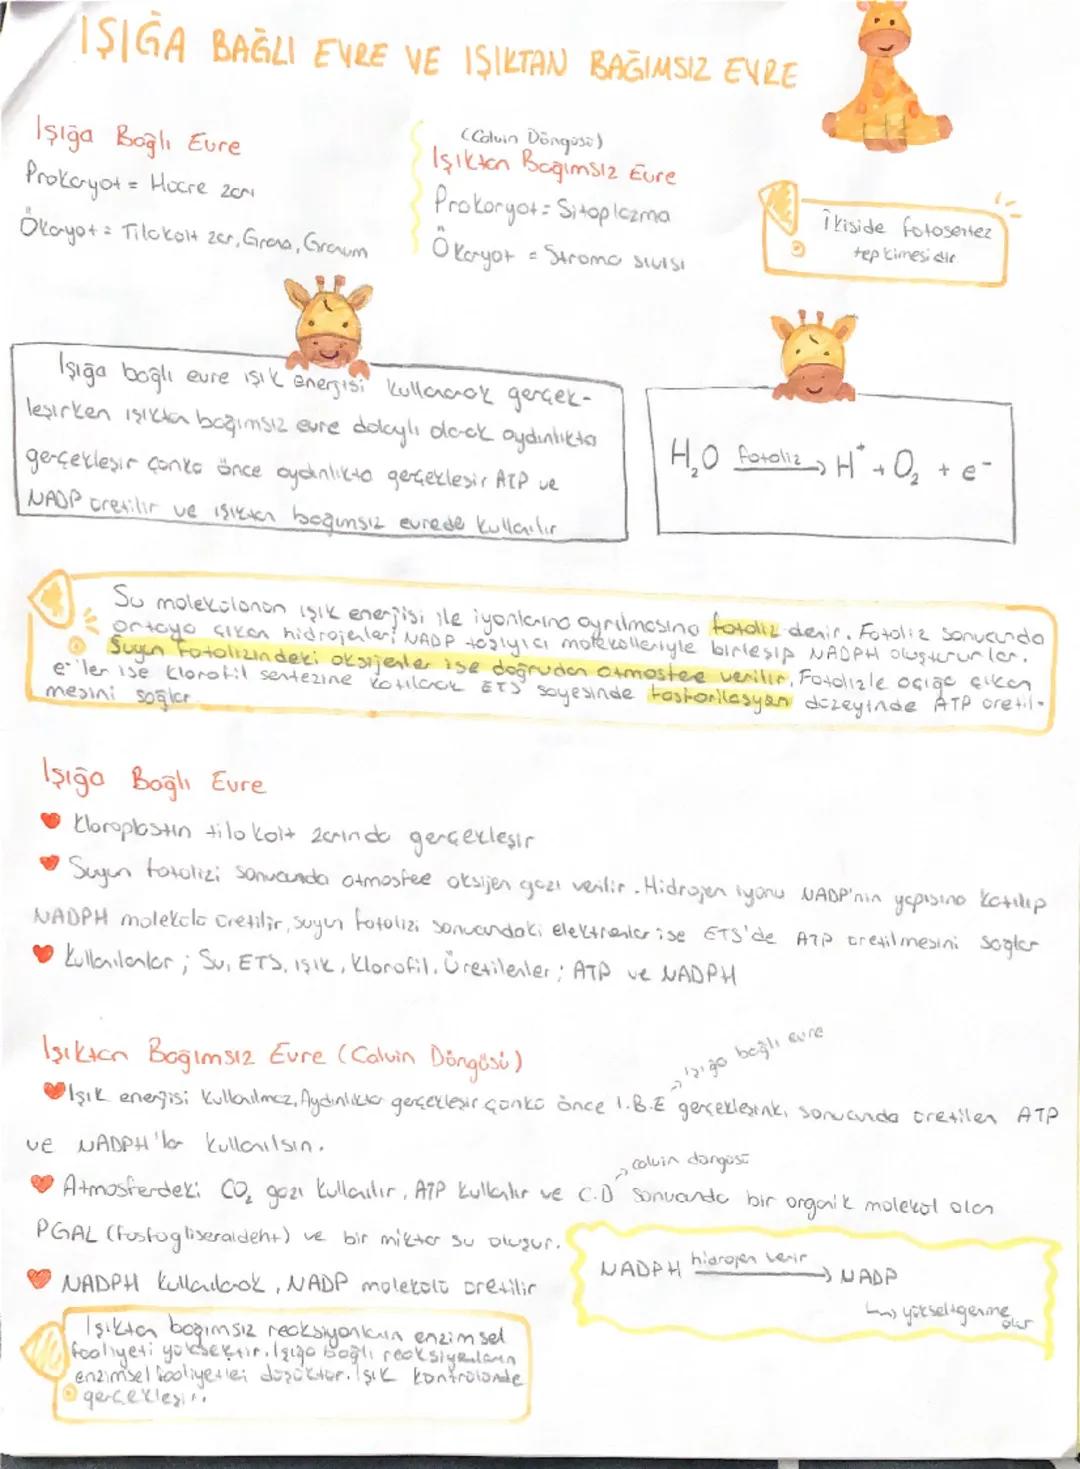 IŞIĞA BAĞLI EVRE VE IŞIKTAN BAĞIMSIZ EVRE
Işığa Bağlı Evre
Prokaryot = Hücre zarı
Ökaryot = Tilakoit zar, Grana, Granum
(Calvin Döngüsü)
Işıktan Bağımsız Evre
Prokaryot = Sitoplazma
Ökaryot = Stroma sıvısı
İkiside fotosentez
tepkimesidir
Işığa bağlı evre ışık enerjisi kullanarak gerçek-
leşirken ışıktan bağımsız evre dolaylı olarak aydınlıkta
gerçekleşir çünkü önce aydınlıkta gerçekleşir ATP ve
NADP üretilir ve ışıktan bağımsız evrede kullanılır
H₂O fotoliz → H⁺ + O₂ + e⁻
Su molekülünün ışık enerjisi ile iyonlarına ayrılmasına fotoliz denir. Fotoliz sonucunda
ortaya çıkan hidrojenleri NADP taşıyıcı molekülleriyle birleşip NADPH oluştururlar.
Suyun Fotolizindeki oksijenler ise doğrudan atmosfere verilir. Fotolizle açığa çıkan
e⁻'ler ise klorofil sentezine katılarak ETS sayesinde fosforilasyon düzeyinde ATP üretil-
mesini sağlar.
Işığa Bağlı Evre
Kloroplastın tilakoit zarında gerçekleşir
Suyun fotolizi sonucunda atmosfere oksijen gazı verilir. Hidrojen iyonu NADP'nin yapısına katılıp
NADPH molekülü üretilir, suyun fotolizi sonucundaki elektronlar ise ETS'de ATP üretilmesini sağlar
Kullanılanlar ; Su, ETS, ışık, klorofil. Üretilenler ; ATP ve NADPH
Işıktan Bağımsız Evre (Calvin Döngüsü)
→ ışığa bağlı evre
Işık enerjisi kullanılmaz, Aydınlıkta gerçekleşir çünkü önce I.B.E gerçekleşinki sonucunda üretilen ATP
ve NADPH'lar kullanılsın.
→ calvin döngüsü
Atmosferdeki CO₂ gazı kullanılır, ATP kullanılır ve C.D sonucunda bir organik molekül olan
PGAL (fosfogliseraldehit) ve bir miktar su oluşur.
NADPH kullanılarak, NADP molekülü üretilir
NADPH hidrojen verir → NADP
↳ yükseltgenme olur
Işıktan bağımsız reaksiyonların enzimsel
faaliyeti yüksektir. Işığa bağlı reaksiyonların
enzimsel faaliyetleri düşüktür. Işık kontrolünde
gerçekleşir.